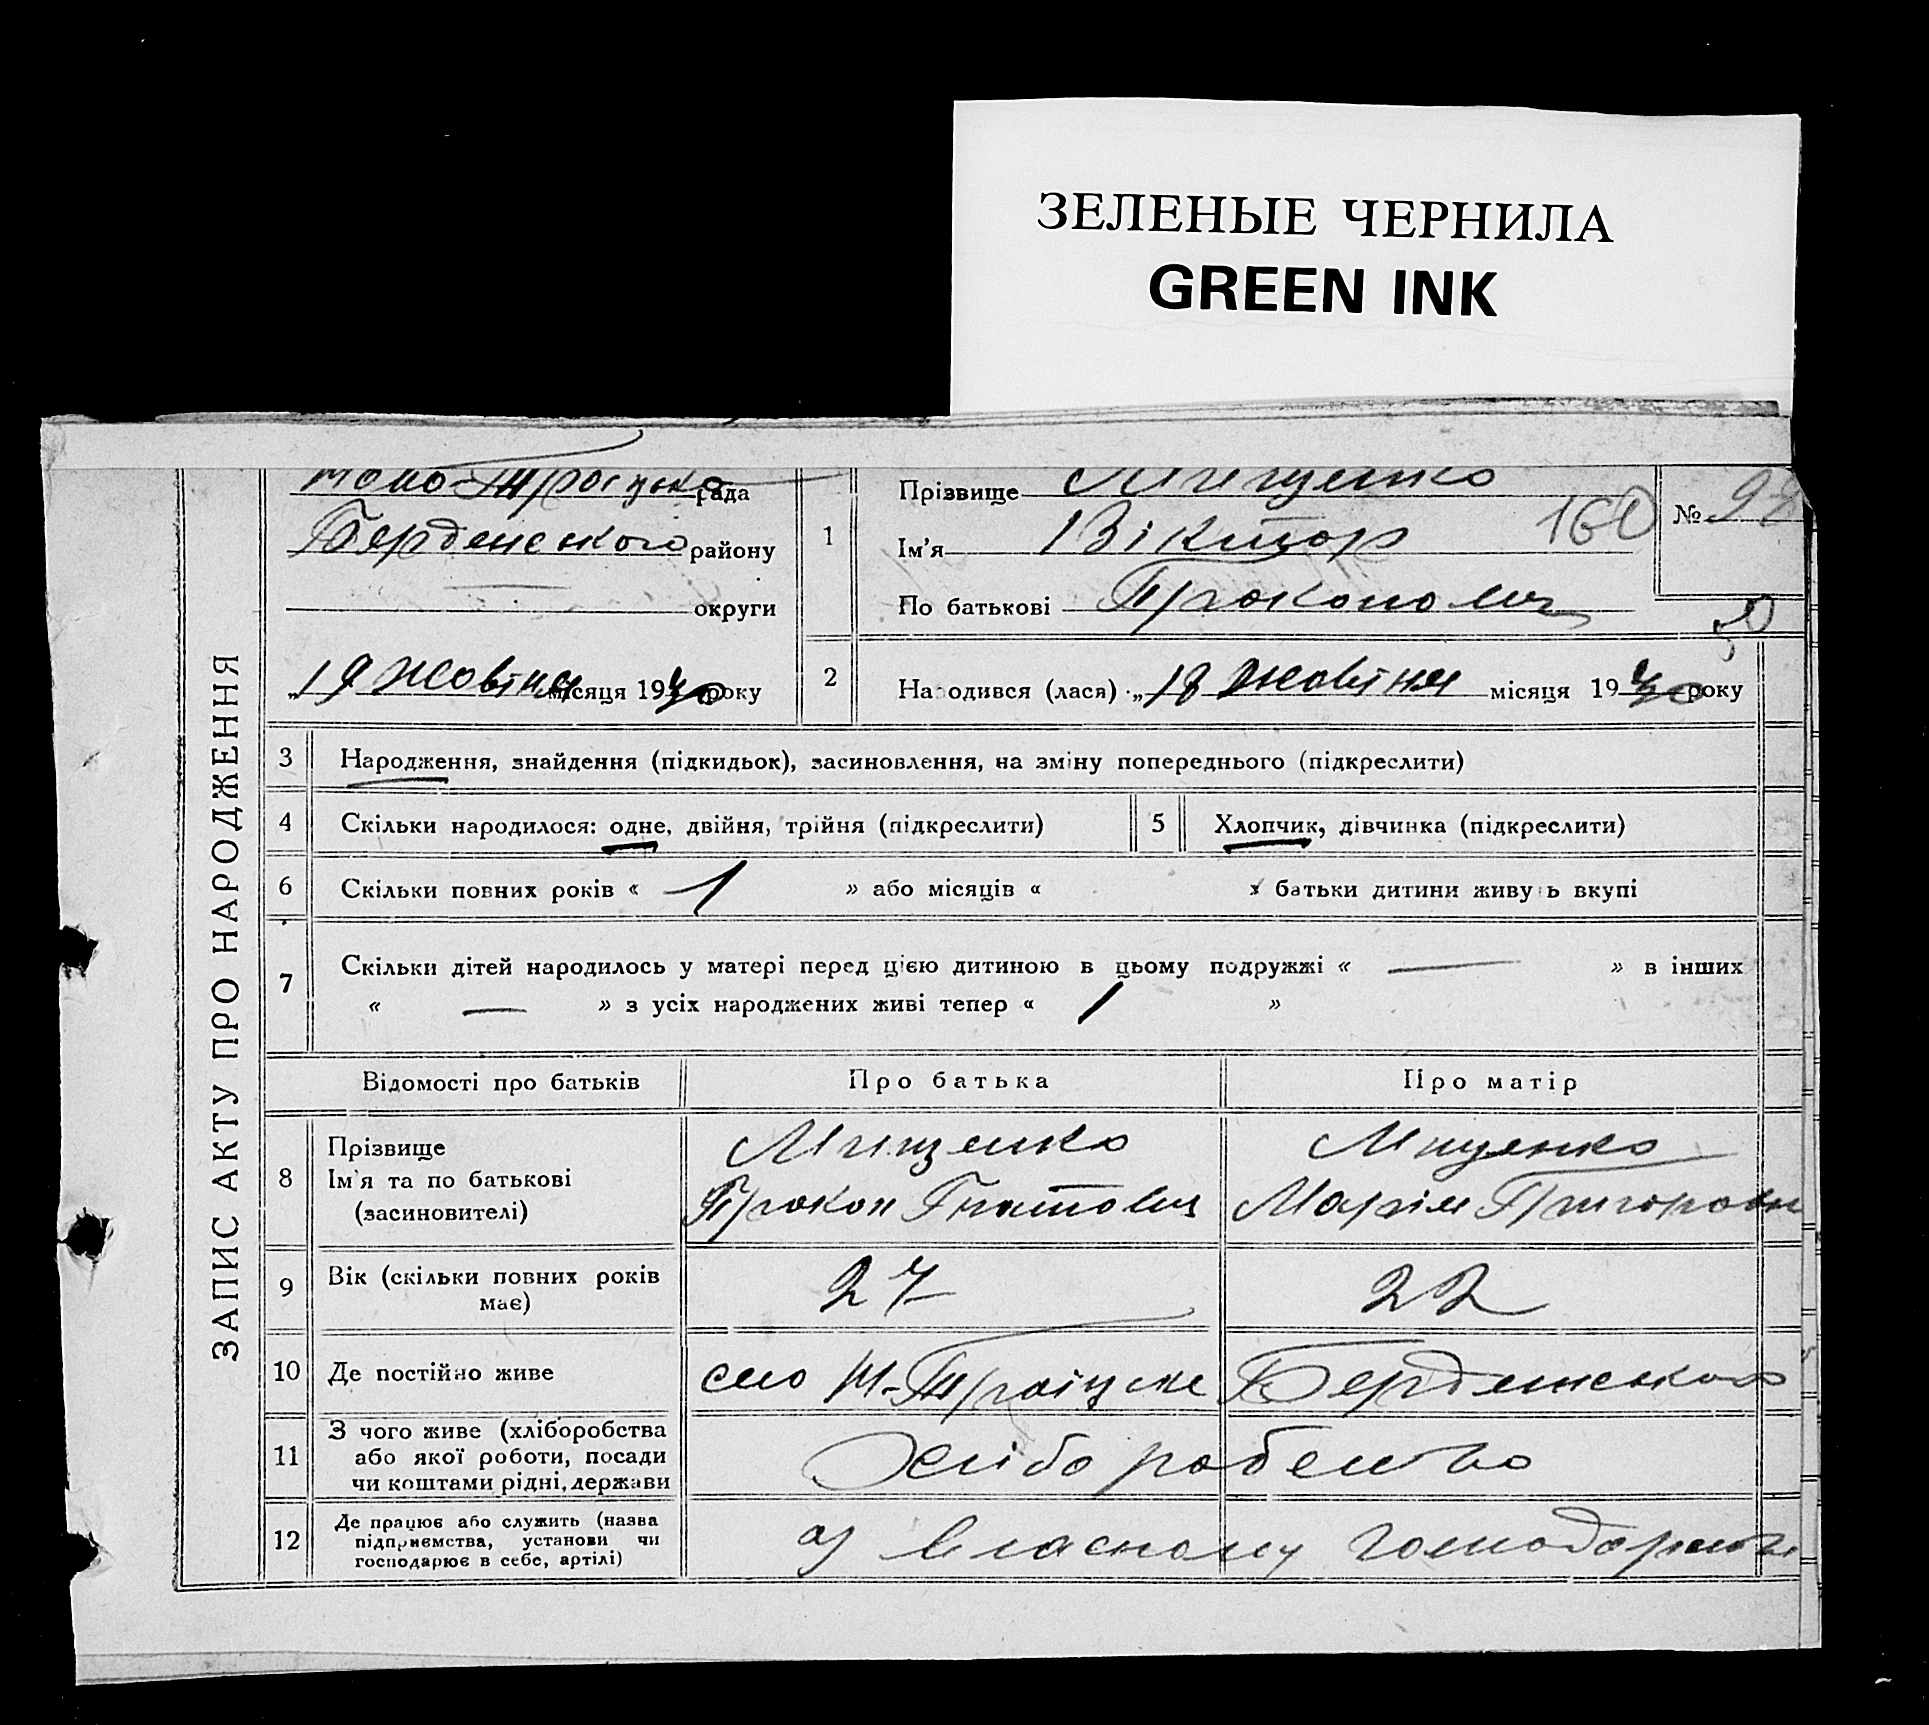 ЗЕЛЕНЫЕ ЧЕРНИЛА
GREEN INK
ЗАПИС АКТУ ПРО НАРОДЖЕННЯ
рада
Бердянського району
округи
„19 жовтня місяця 1930 року
1
Прізвище Мищенко
Ім'я Віктор 160
По батькові Прокопович
№
2
Народився (лася) „18 жовтня місяця 1930 року
3 Народження, знайдення (підкидьок), засиновлення, на зміну попереднього (підкреслити)
4 Скільки народилося: одне, двійня, трійня (підкреслити)
5 Хлопчик, дівчинка (підкреслити)
6 Скільки повних років « 1 » або місяців « » батьки дитини живуть вкупі
7 Скільки дітей народилось у матері перед цією дитиною в цьому подружжі « — » в інших
« — » з усіх народжених живі тепер « 1 »
Відомості про батьків Про батька Про матір
8 Прізвище
Ім'я та по батькові
(засиновителі)
Мищенко
Прокоп Гнатович
Мищенко
Марія Григоровн
9 Вік (скільки повних років
має)
27
22
10 Де постійно живе
село М-Троіцьке Бердянського
11 З чого живе (хліборобства
або якої роботи, посади
чи коштами рідні, держави
Хліборобство
12 Де працює або служить (назва
підприємства, установи чи
господарює в себе, артілі)
власному господарстві